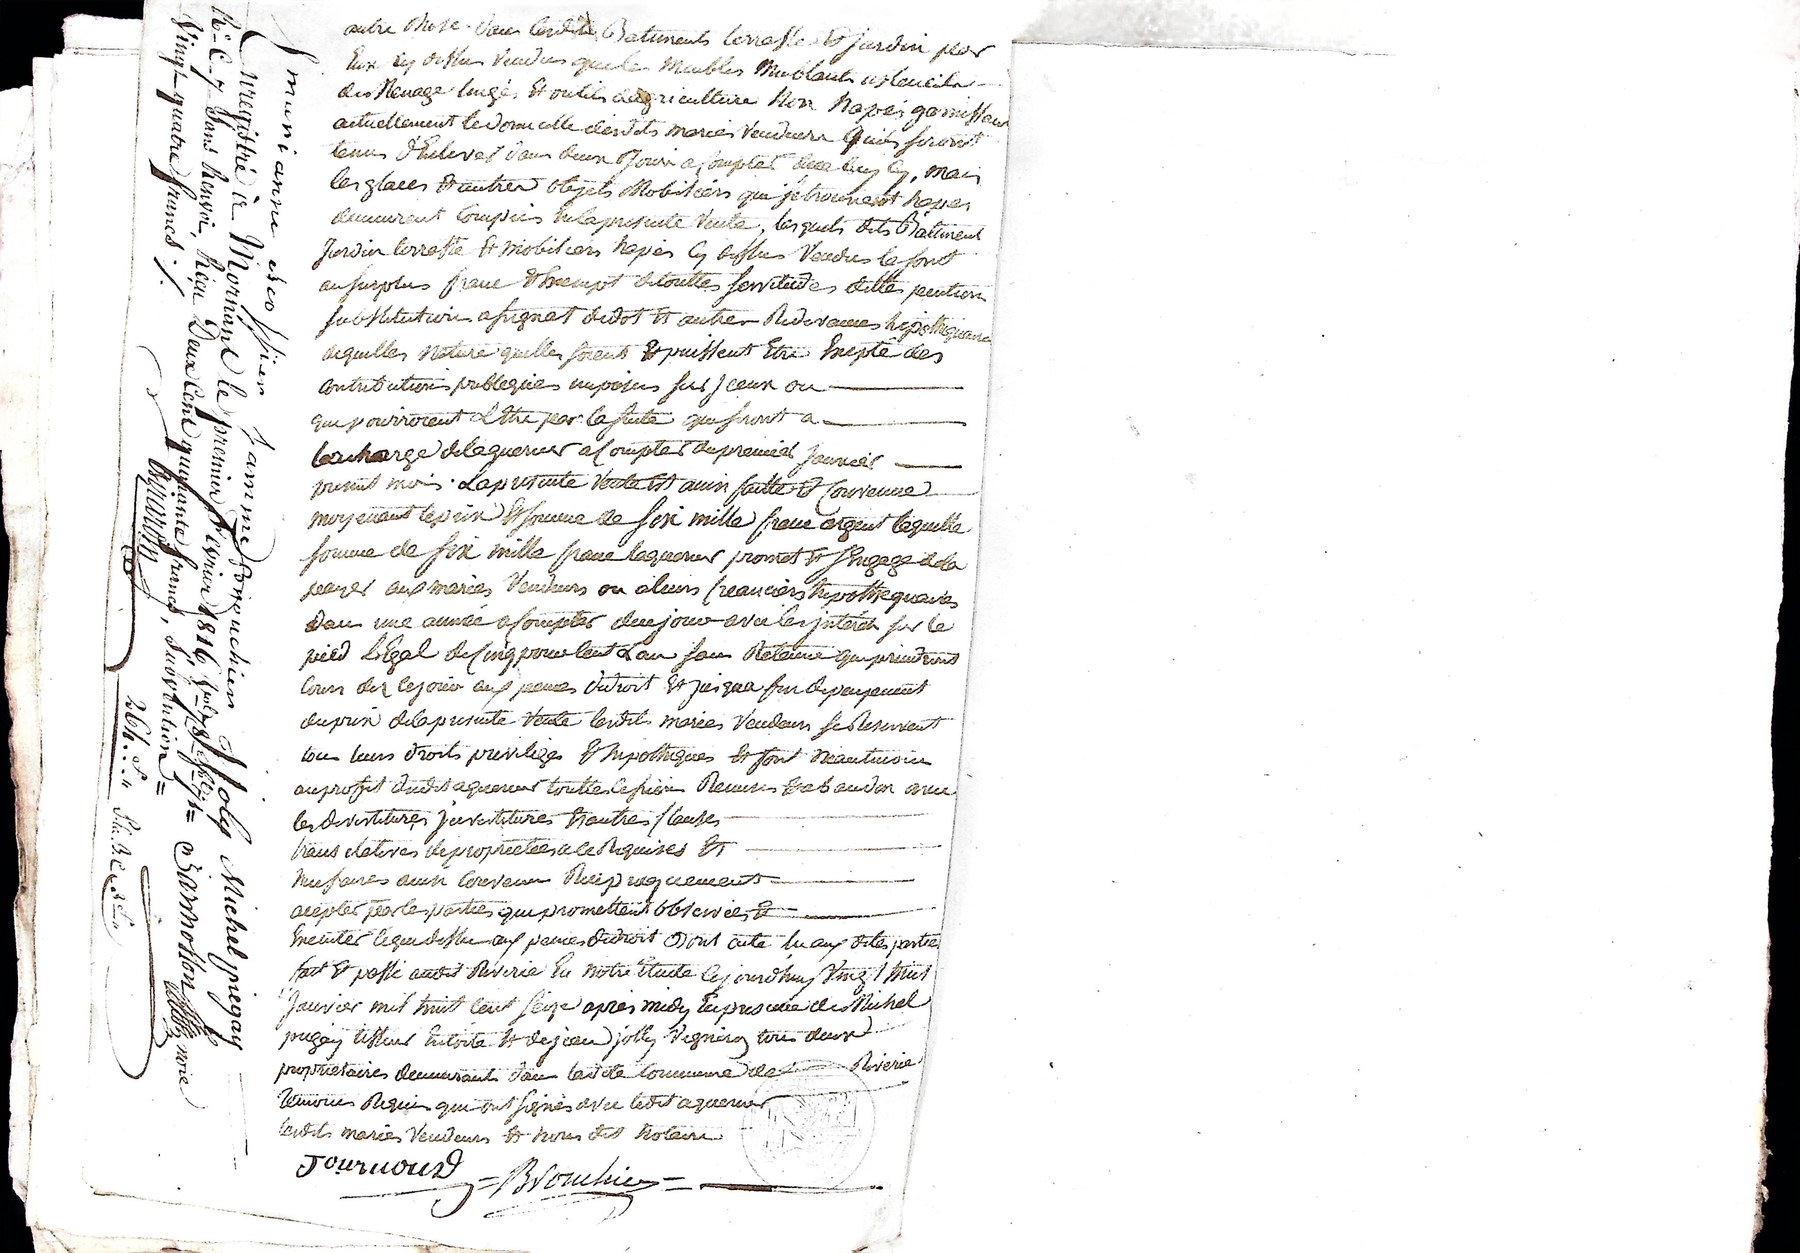 autre chose dans lesdits Batiments terrasse et jardin par
Eux cy dessus vendus que les meubles meublants ustencila
des Menage linges Et outils dagriculture non hapés garnissant
actuellement le domicille desdits mariés vendeurs quils seront
tenus d'Enlever dans deux Jours a compter de ce luy cy, mais
les glaces Et autres objets Mobiliers qui se trouveront hapes
demeurent compris en la presente vente, lesquels dits Batiment
Jardin terrasse Et mobiliers hapés cy dessus vendus le sont
au surplus franc Et Exempt de touttes servitudes dettes pention
substitution assignat de dot Et autres Redevances hipothequaire
de quelles nature quelles soient Et puissent Etre Excepté des
contributions publiques imposés sur Jceux ou
qui pourroient L'Etre par la suite qui seront a
la charge de laquereur a compter du premier janvier
present mois. La presente vente Est ainsi faitte Et Convenue
moyenant le prix Et somme de six mille franc argent laquelle
somme de six mille franc laquereur promet Et s'Engage de la
payer aux mariés vendeurs ou a leurs creanciers hipothequaires
dans une année a compter de ce jour avec les intérêt sur le
pied Légal de cinq pour cent L'an sans Retenue qui prendront
cours dez ce jour aux peines de droit Et jusqua fin de payement
du prix de la presente vente lesdits mariés vendeurs se Reservent
tous leurs droits privileges Et hipotheques Et font neantmoins
au profit dudit aquereur touttes cession Remises Et abandon avec
les devestitures jnvestitures Et autres clauses
translatives de proprietées a ce Requises Et
necessaires ainsi convenu Reciproquement
accepter par les parties qui promettent observer Et
Executer ce que dessus aux peines de droit Dont acte lu aux dites parties
fait Et passé audit Riverie En notre Etude ce jourdhuy vingt huit
Janvier mil huit cent seize après midy En presence de Michel
piegay tisseur En toile Et de jean jolly vigneron tous deux
proprietaires demeurants dans ladite commune de Riverie
temoins Requis qui ont signés avec ledit aquereur
lesdits mariés vendeurs Et nous dit notaire
Journoud = Brouchier =
Jeanne Brouchier Joly Michel piegay
Enregistré à Mornant le premier fevrier 1816
R.C. 7 sans renvoi, reçu Deux cent quarante francs, Subvention =
Vingt quatre francs ./.
264 f.